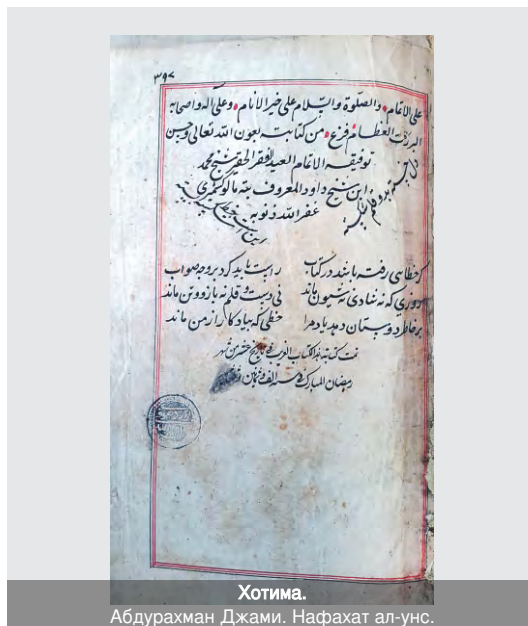 ۳۹۷
علی الاتمام والصلوة والسلام علی خیر الانام وعلی اله واصحابه
البررة العظام فرغ من کتابته بعون الله تعالی وحسن
توفیقه الاتمام العبد الفقر الحقر شیخ محمد
ابن شیخ داود المعروف بته
غفر الله ذنوبه
کر خطایی رفته باشد در کتاب راست باید کرد بر وجه صواب
روزی که نه شادی نه شیون ماند نی دست و قلم نه بازو و تن ماند
بر خاطر دوستان دهد یاد مرا خطی که بیاد کار از من ماند
تمت کتابة هذا الکتاب تاریخ شهر
رمضان المبارک
Хотима.
Абдурахман Джами. Нафахат ал-унс.